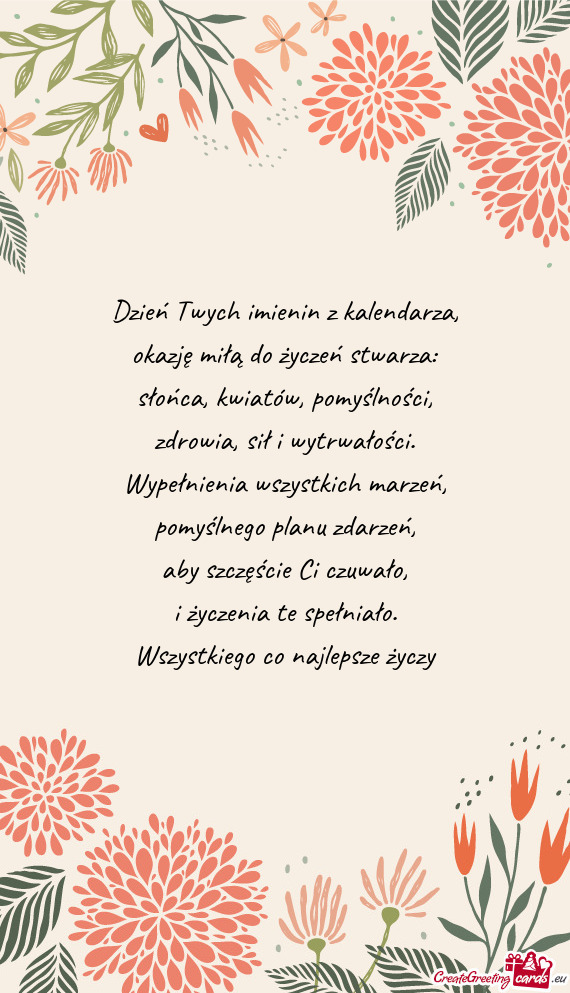 Dzień Twych imienin z kalendarza,
okazję miłą do życzeń stwarza:
słońca, kwiatów, pomyślności,
zdrowia, sił i wytrwałości.
Wypełnienia wszystkich marzeń,
pomyślnego planu zdarzeń,
aby szczęście Ci czuwało,
i życzenia te spełniało.
Wszystkiego co najlepsze życzy
CreateGreeting cards .eu